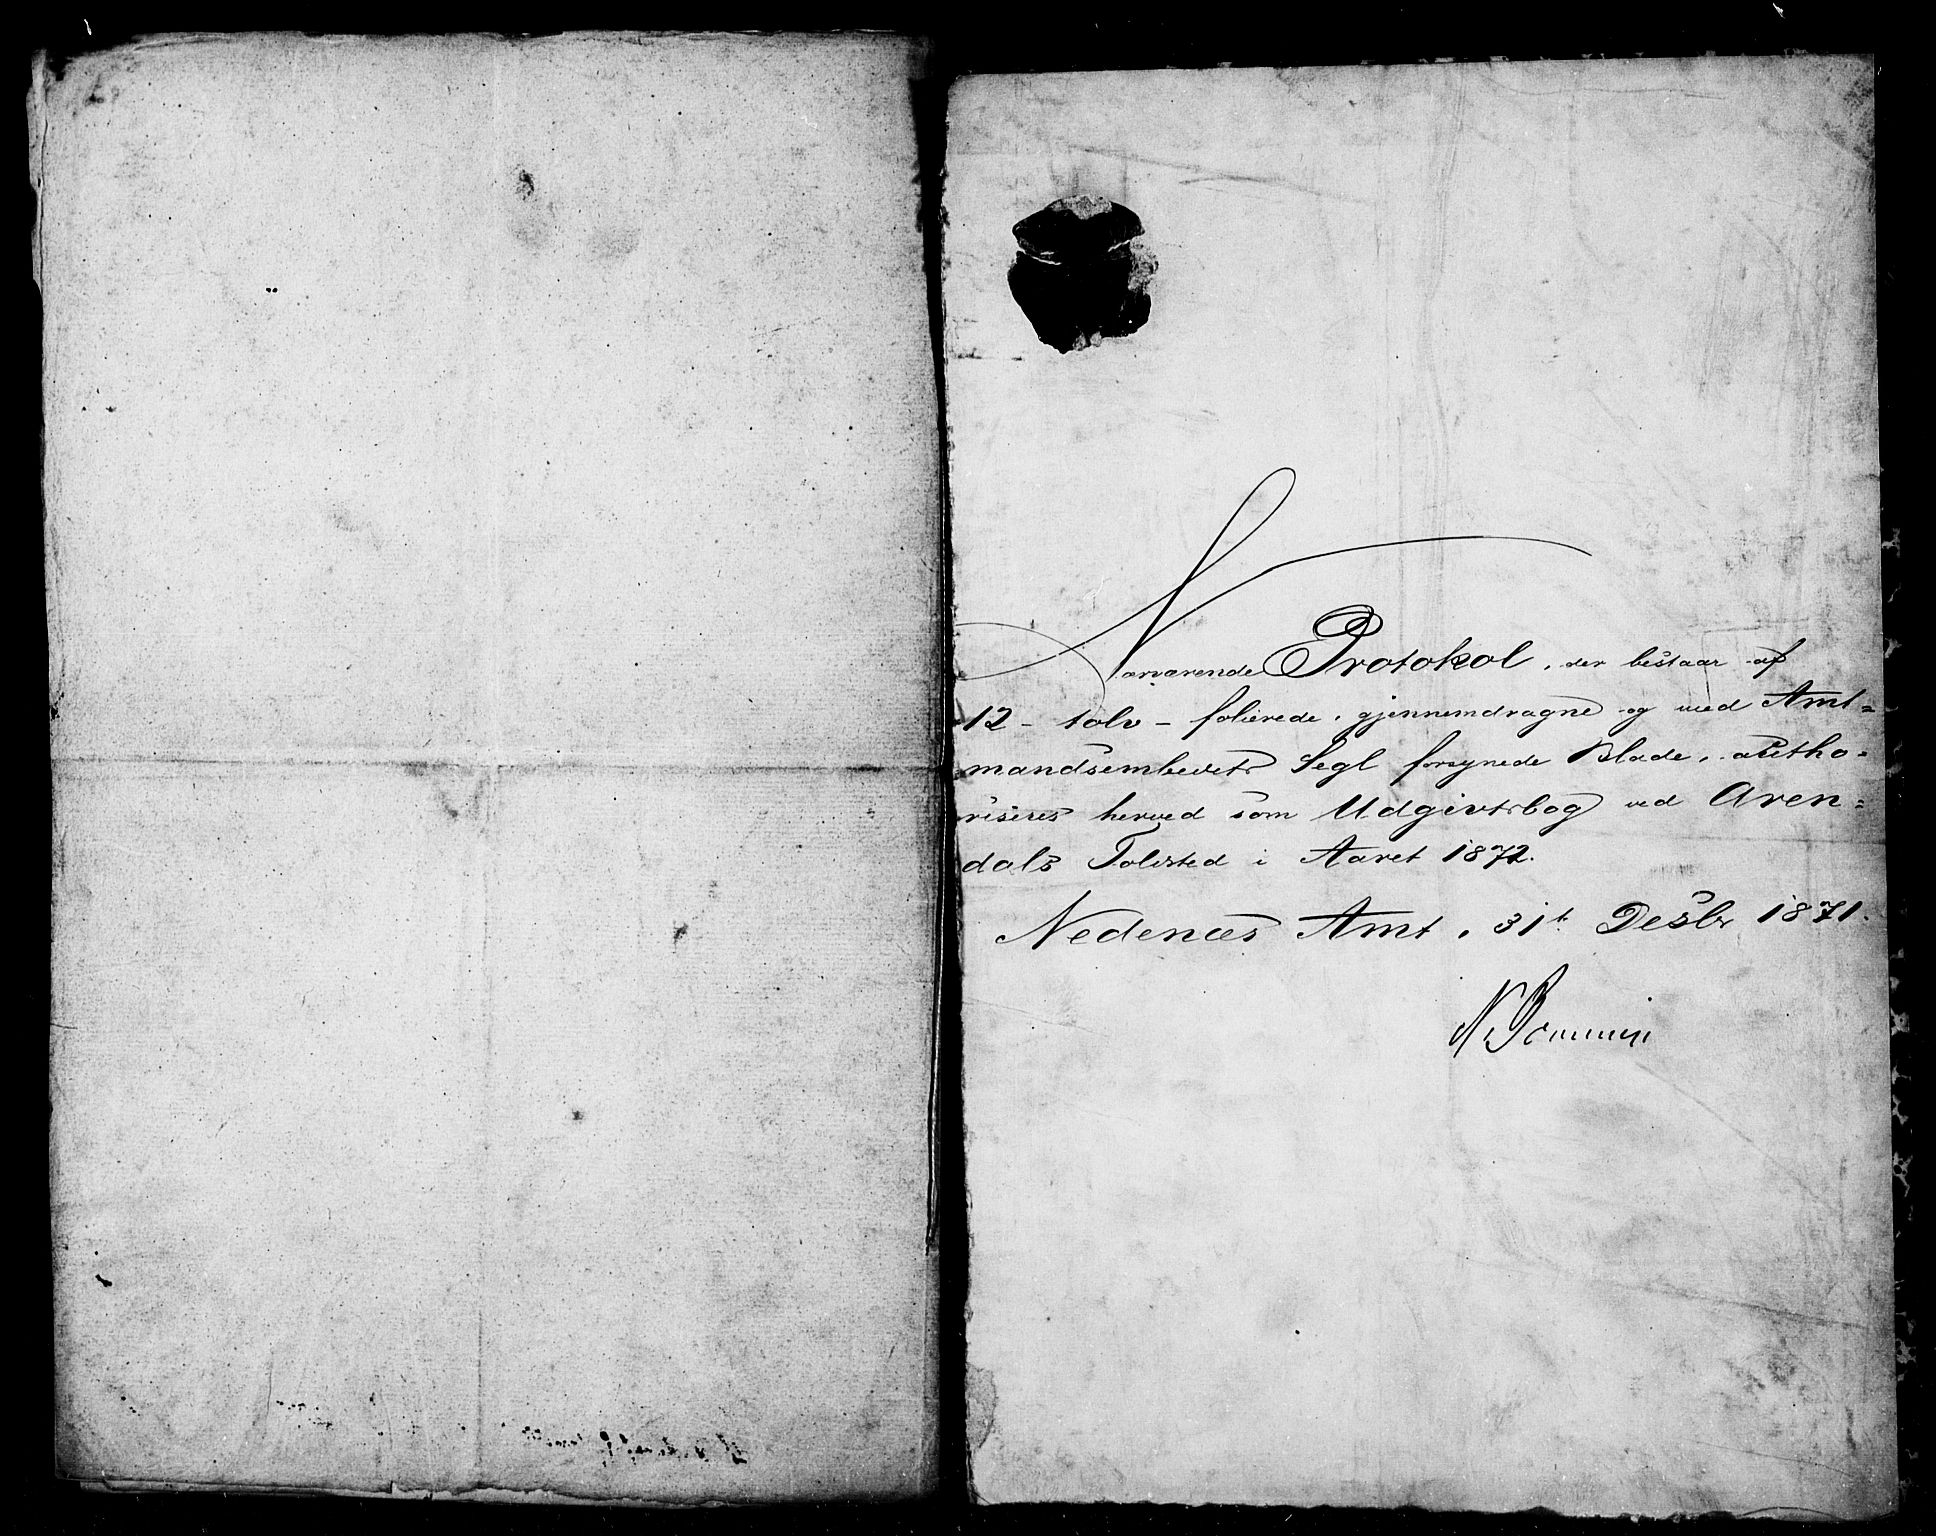 Nærværende Protokol, der bestaar af
12 - tolv - folierede, gjennemdragne og med Amt=
mandsembedets Segl forsynede Blade, autho=
riseres herved som Udgivtsbog ved Aren=
dals Toldsted i Aaret 1872.
Nedenæs Amt, 31t Desbr 1871.